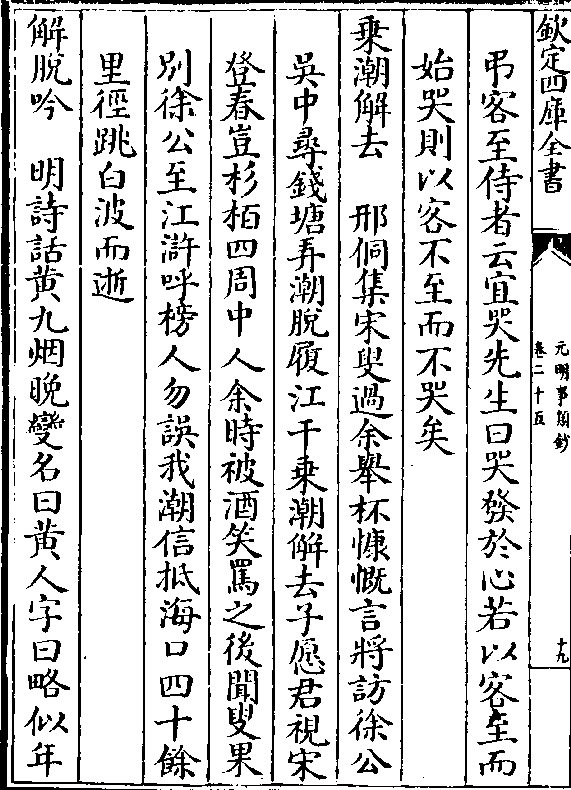 欽定四庫全書
元明事類鈔
卷二十五
十九
弔客至侍者云宜哭先生曰哭發於心若以客至而
始哭則以客不至而不哭矣
乗潮解去　邢侗集宋叟過余舉杯慷慨言將訪徐公
吳中尋錢塘弄潮脫履江干乗潮解去子愿君視宋
登春豈杉栢四周中人余時被酒笑罵之後聞叟果
別徐公至江滸呼榜人勿誤我潮信抵海口四十餘
里徑跳白波而逝
解脫吟　明詩話黄九烟晚變名曰黄人字曰略似年